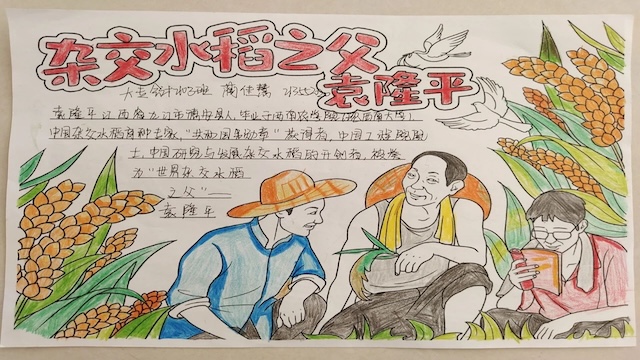 杂交水稻之父
袁隆平
陶佳慧
袁隆平江西省九江市德安县人，毕业于西南农学院（现西南大学）
中国杂交水稻育种专家，“共和国勋章”获得者，中国工程院院
士，中国研究与发展杂交水稻的开创者，被誉
为“世界杂交水稻
之父”—
袁隆平